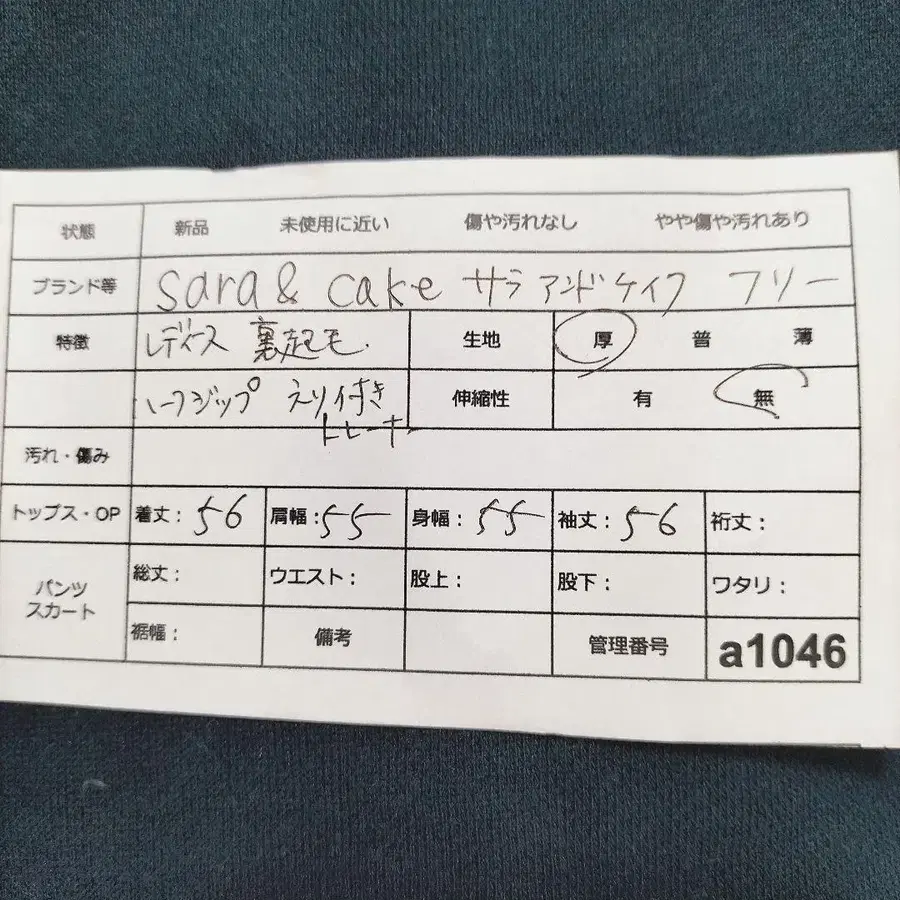 状態 新品 未使用に近い 傷や汚れなし やや傷や汚れあり
ブランド等 sara & cake サラアンドケイク フリー
特徴 レディース 裏起毛 生地 厚 普 薄
ハーフジップ えり付き 伸縮性 有 無
トレーナー
汚れ・傷み
トップス・OP 着丈:56 肩幅:55 身幅:55 袖丈:56 裄丈:
パンツ スカート 総丈: ウエスト: 股上: 股下: ワタリ:
裾幅: 備考 管理番号 a1046